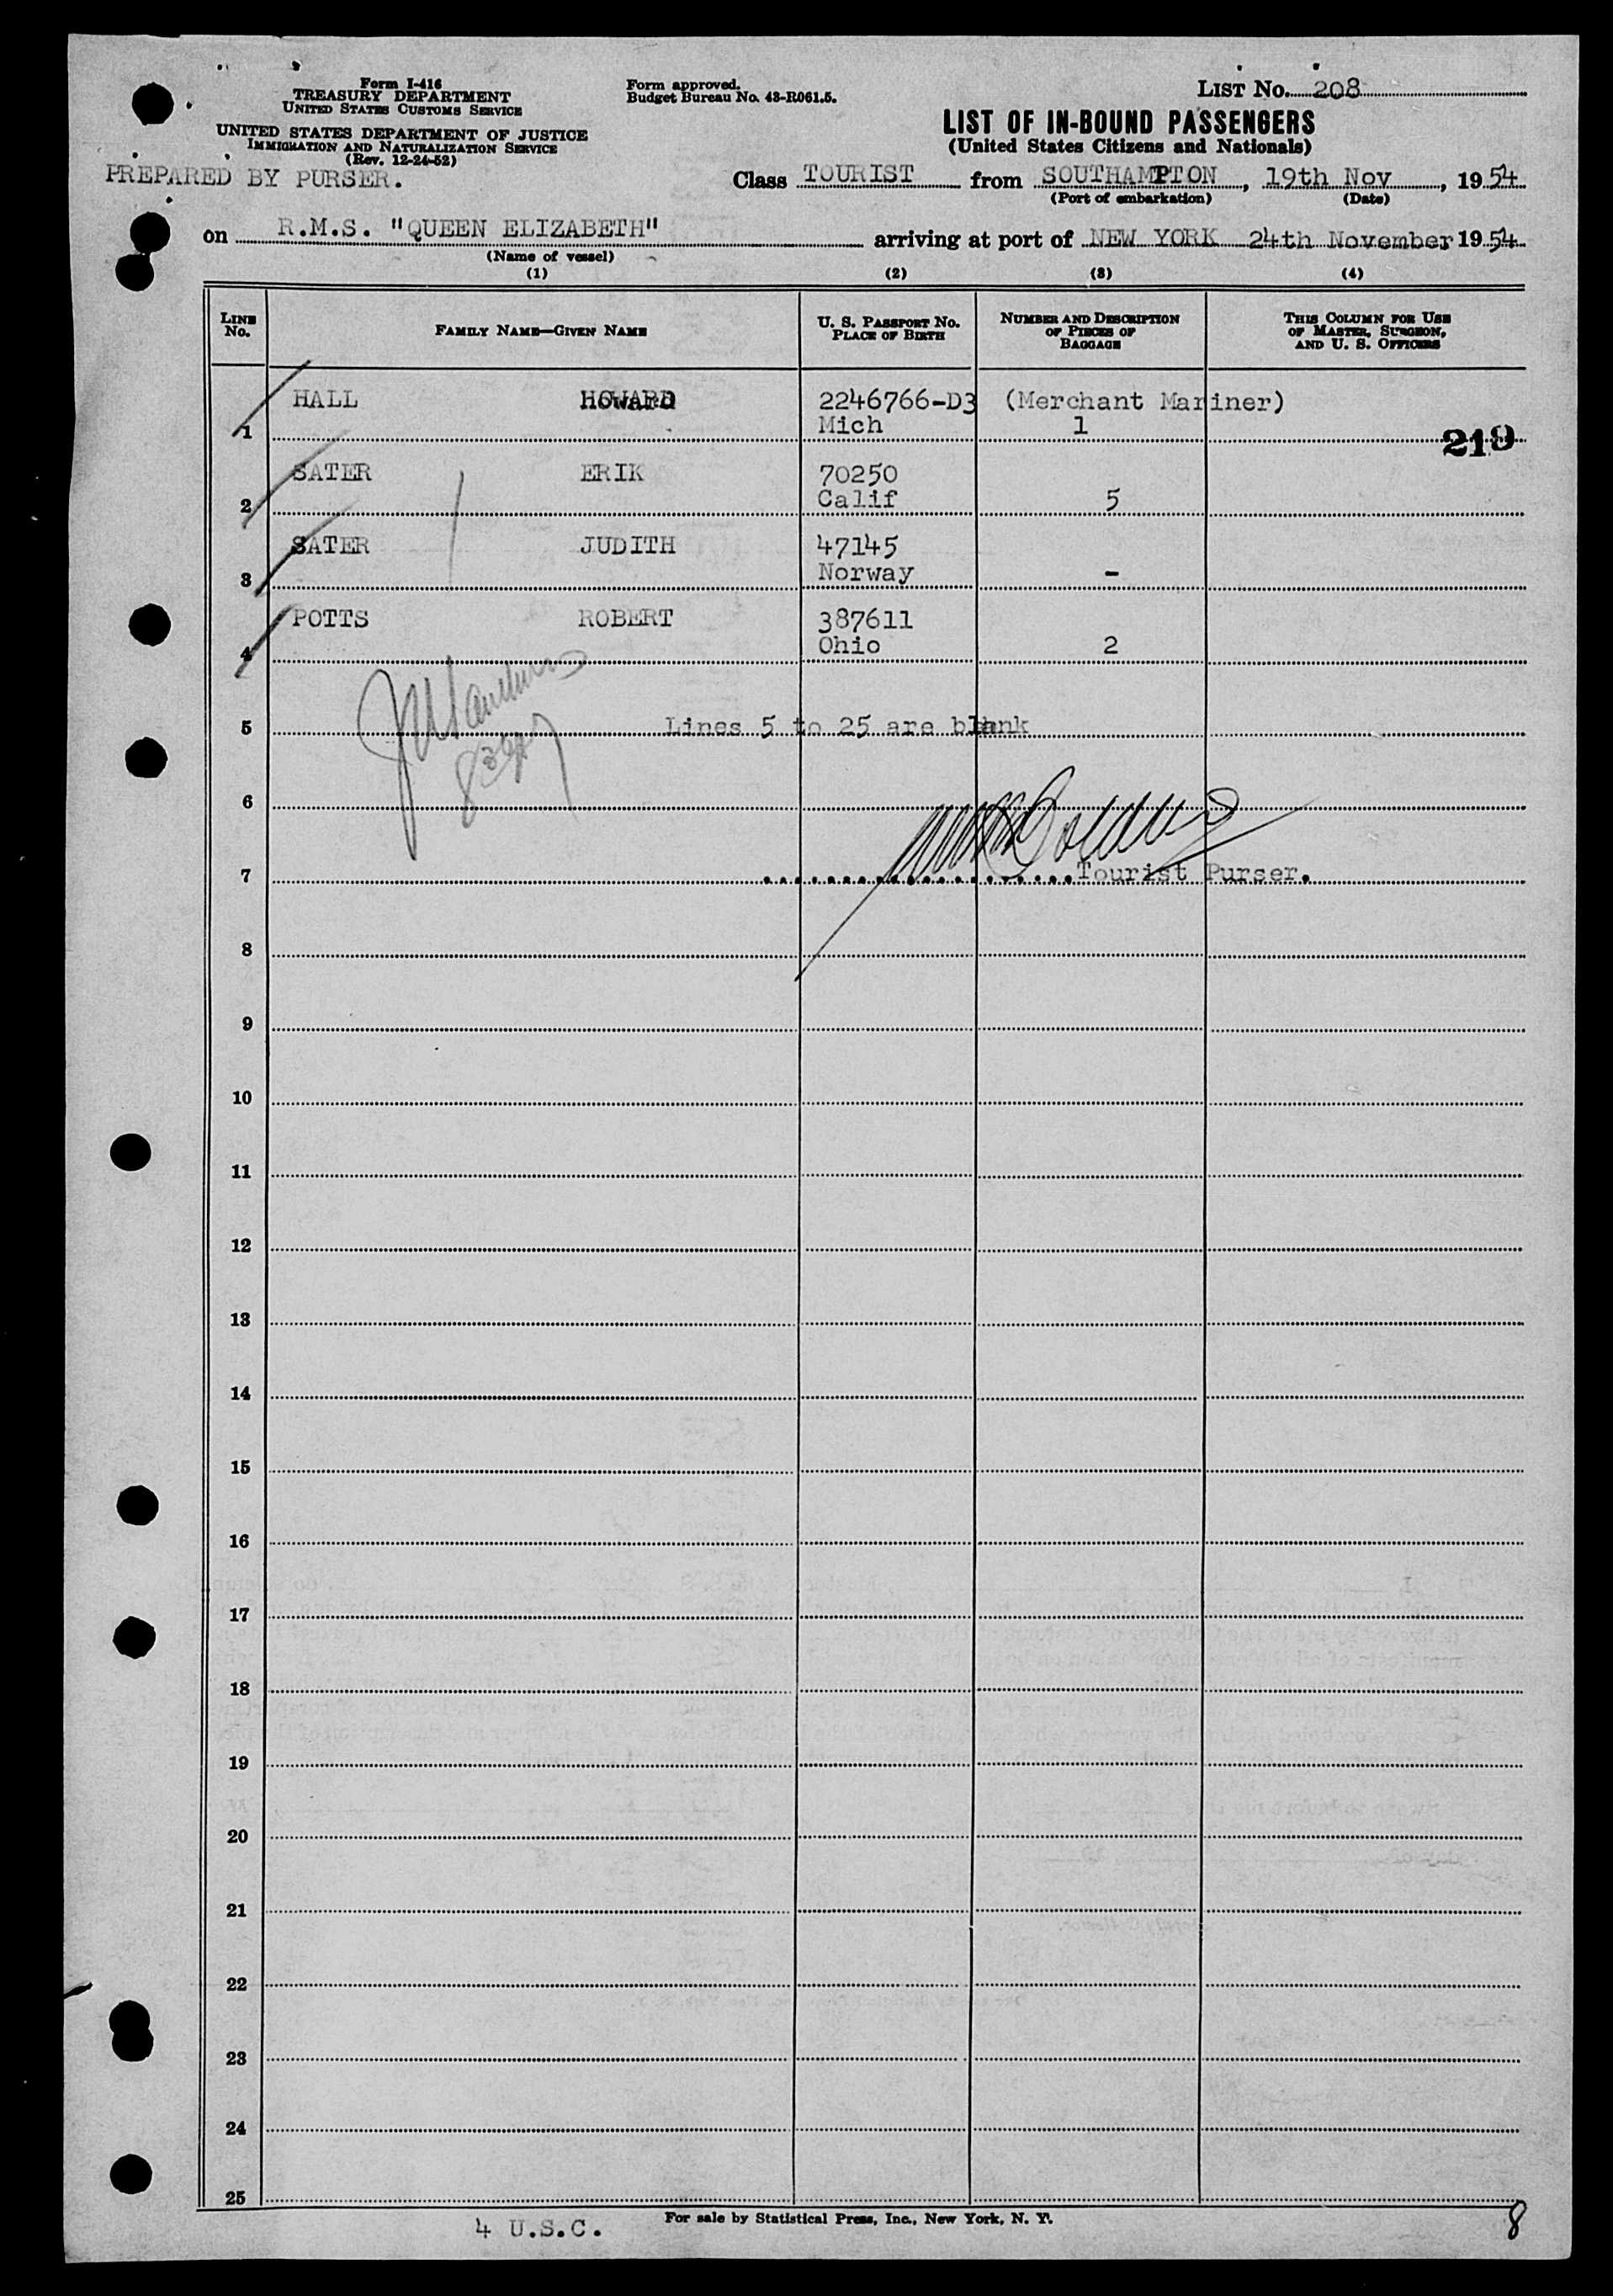 Form I-416
TREASURY DEPARTMENT
UNITED STATES CUSTOMS SERVICE
UNITED STATES DEPARTMENT OF JUSTICE
IMMIGRATION AND NATURALIZATION SERVICE
(Rev. 12-24-52)
PREPARED BY PURSER.
Form approved.
Budget Bureau No. 43-R061.5.
LIST No. 208
LIST OF IN-BOUND PASSENGERS
(United States Citizens and Nationals)
Class TOURIST from SOUTHAMPTON, 19th Nov, 1954
(Port of embarkation) (Date)
on R.M.S. "QUEEN ELIZABETH" arriving at port of NEW YORK 24th November 1954
(Name of vessel)
(1) (2) (3) (4)
LINE No. FAMILY NAME—GIVEN NAME U. S. PASSPORT No. PLACE OF BIRTH NUMBER AND DESCRIPTION OF PIECES OF BAGGAGE THIS COLUMN FOR USE OF MASTER, SURGEON, AND U. S. OFFICERS
HALL HOWARD 2246766-D3 (Merchant Mariner)
1 Mich 1
219
SATER ERIK 70250
2 Calif 5
SATER JUDITH 47145
3 Norway -
POTTS ROBERT 387611
4 Ohio 2
5 Lines 5 to 25 are blank
6
7 Tourist Purser.
8
9
10
11
12
13
14
15
16
17
18
19
20
21
22
23
24
25
4 U.S.C. For sale by Statistical Press, Inc., New York, N. Y.
8